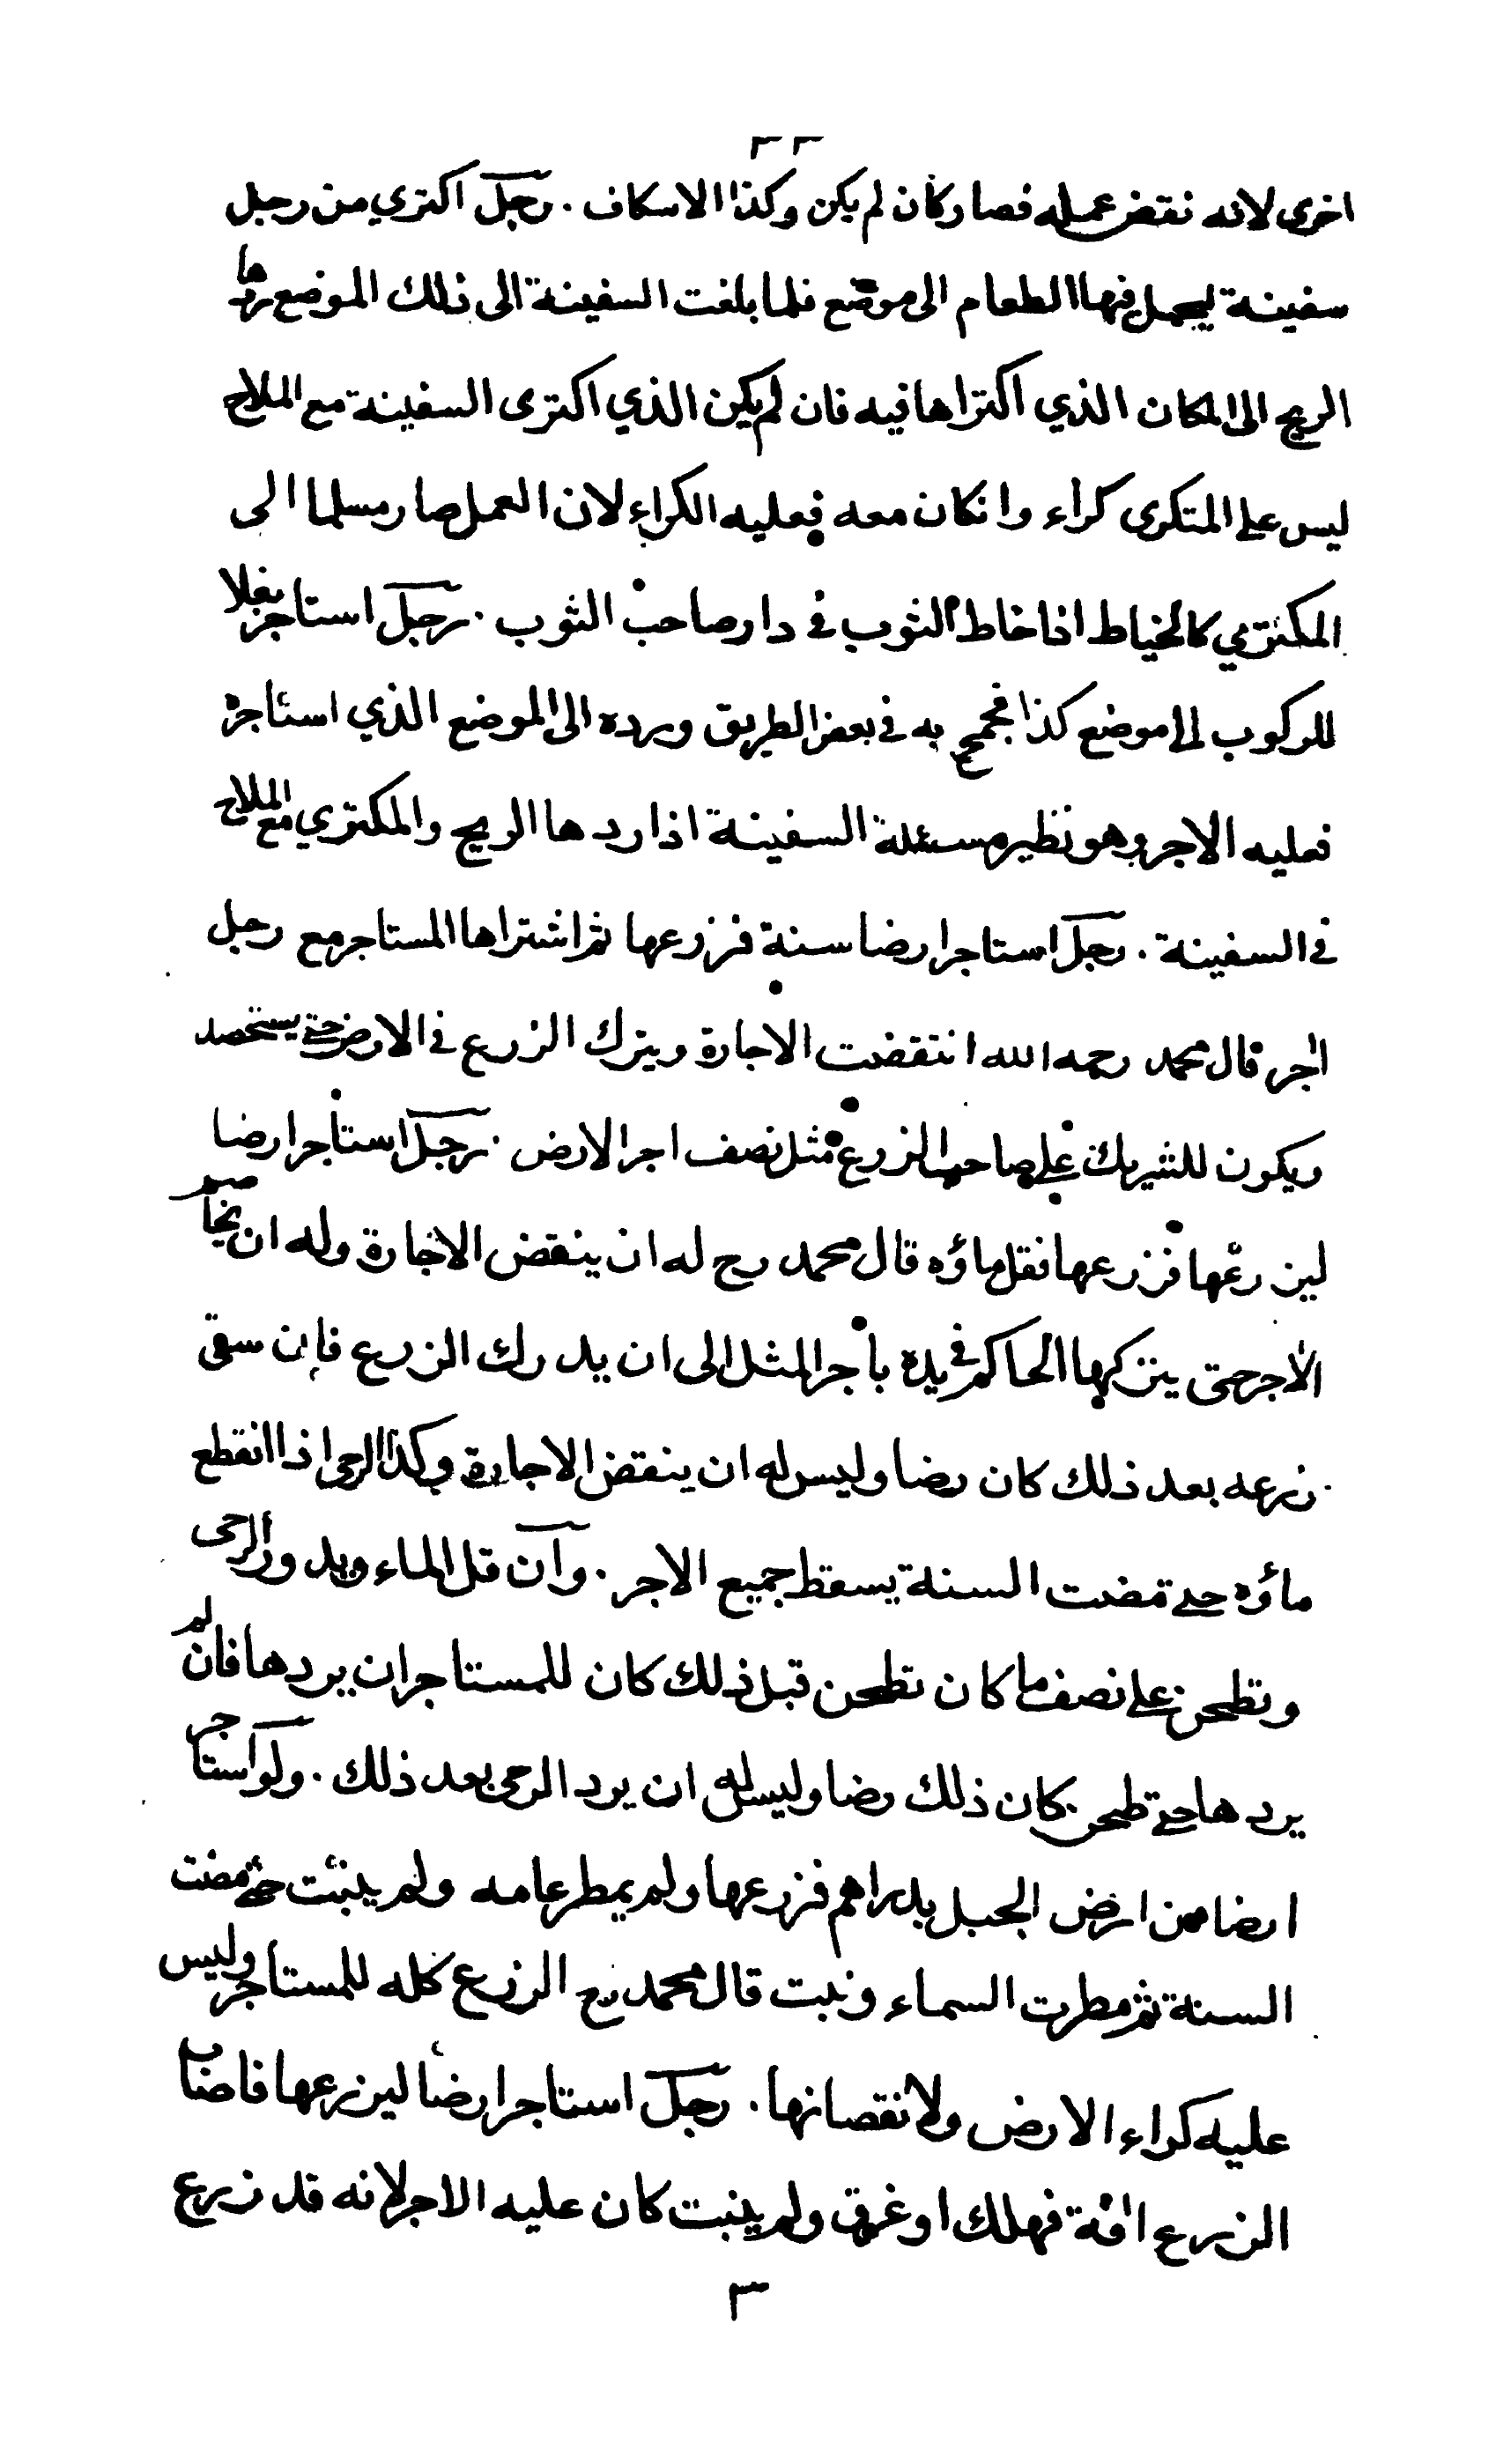 ٣٣
اخرى لانه نقض عمله فصار كان لم يكن وكذا الاسكاف . رجل اكتري من رجل
سفينة ليحمل فيها الطعام الى موضع فلما بلغت السفينة الى ذلك الموضع ردها
الريح الى المكان الذي اكتراها فيه فان لم يكن الذي اكترى السفينة مع الملاح
ليس على المتكرى كراء وانكان معه فعليه الكراء لان العمل صار مسلما الى
المكتري كالخياط اذا خاط الثوب في دار صاحب الثوب . رجل استاجر بغلا
للركوب الى موضع كذا فجمح به في بعض الطريق ورده الى الموضع الذي استاجره
فعليه الاجر وهو نظير مسئلة السفينة اذا ردها الريح والمكتري مع الملاح
في السفينة . رجل استاجر ارضا سنة فزرعها ثم اشتراها المستاجر مع رجل
اخر قال محمد رحمه الله انتقضت الاجارة ويترك الزرع في الارض حتى يستحصد
ويكون للشريك على صاحب الزرع مثل نصف اجر الارض . رجل استأجر ارضا
ليزرعها فزرعها فقل ماؤه قال محمد رح له ان ينقض الاجارة وله ان يخاصم
الاجر حتى يتركها الحاكم في يده بأجر المثل الى ان يدرك الزرع فإن سقى
زرعه بعد ذلك كان رضا وليس له ان ينقض الاجارة وكذا الرحى اذا انقطع
ماؤه حتى مضت السنة يسقط جميع الاجر . وان قل الماء ويدور الرحى
وتطحن على نصف ما كان تطحن قبل ذلك كان للمستاجر ان يردها فان لم
يردها حتى طحن كان ذلك رضا وليس له ان يرد الرحى بعد ذلك . ولو استاجر
ارضا من ارض الجبل بدراهم فزرعها ولم يمطر عامه ولم ينبت حتى مضت
السنة ثم مطرت السماء ونبت قال محمد رح الزرع كله للمستاجر وليس
عليه كراء الارض ولا نقصانها . رجل استاجر ارضا ليزرعها فاصاب
الزرع افة فهلك او غرق ولم ينبت كان عليه الاجر لانه قد زرع
٣